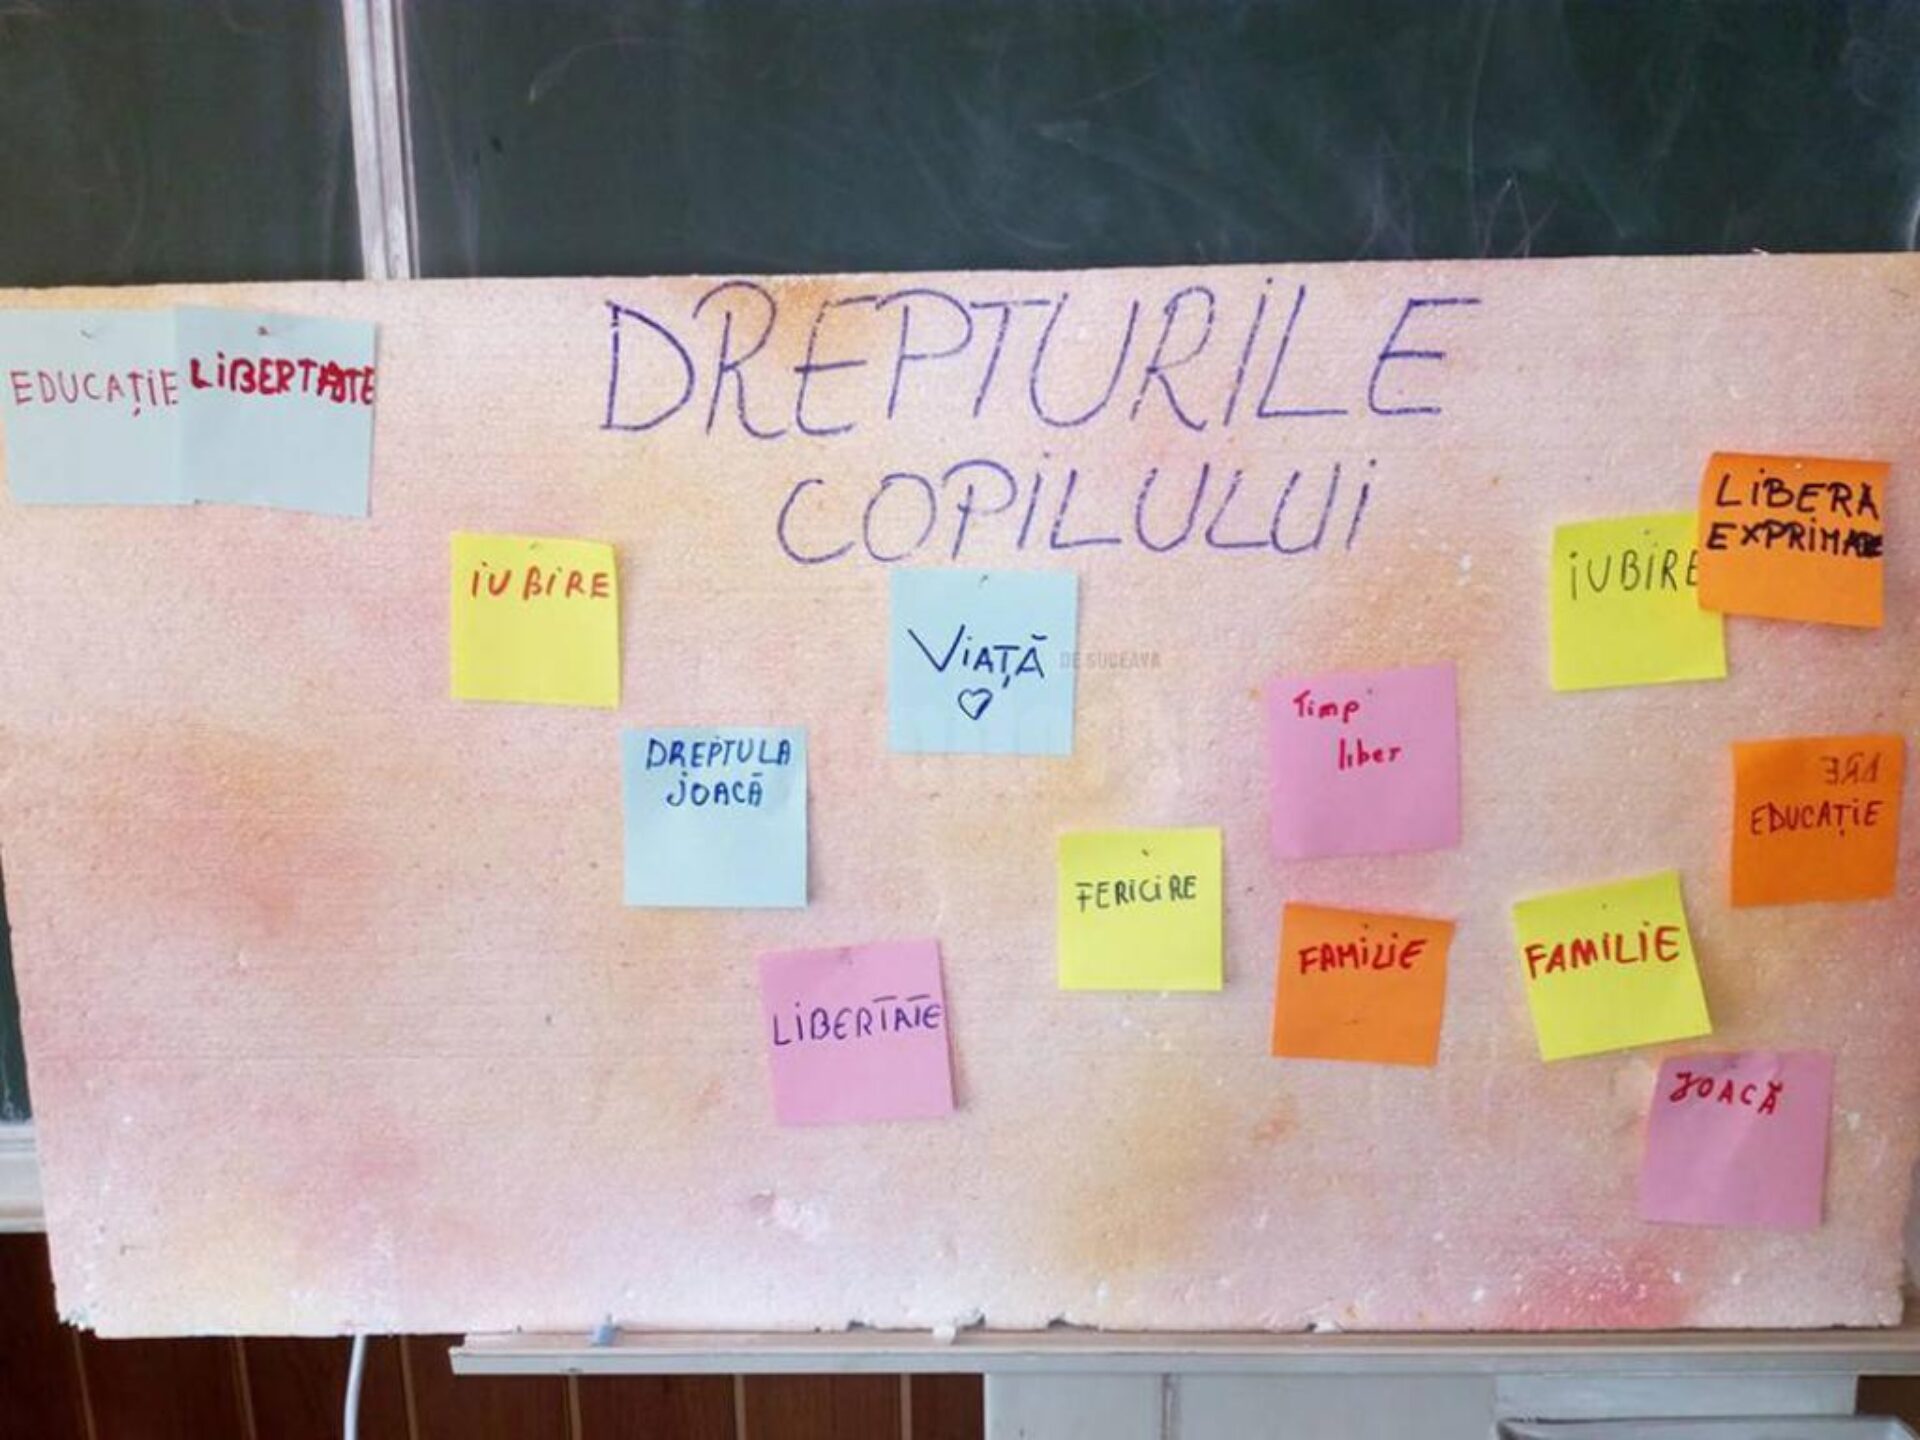 DREPTURILE
COPILULUI
EDUCAȚIE
LIBERTATE
IUBIRE
VIAȚĂ
DREPTUL LA
JOACĂ
LIBERTATE
FERICIRE
Timp
liber
FAMILIE
FAMILIE
IUBIRE
LIBERĂ
EXPRIMARE
EDUCAȚIE
JOACĂ
DE SUCEAVA